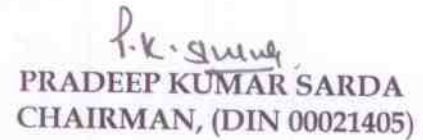 P.K. Sarda
PRADEEP KUMAR SARDA
CHAIRMAN, (DIN 00021405)